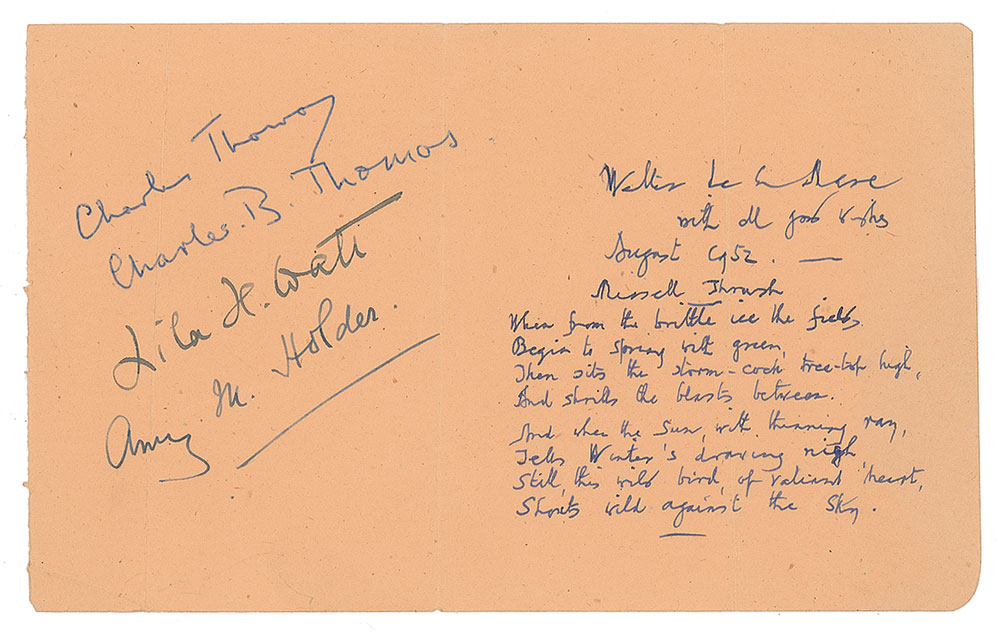 Charles Thomas
Charles. B. Thomas
Lila H. Watt
Amy M. Holder.
Walter de la Mare
with all good wishes
August 1952. —
Missell Thrush
When from the brittle ice the fields
Begin to spring with green,
Then sits the storm-cock tree-top high,
And shrills the blasts between.
And when the Sun, with thinning ray,
Tells Winter's drawing nigh,
Still, this wild bird, of valiant heart,
Shouts wild against the sky.